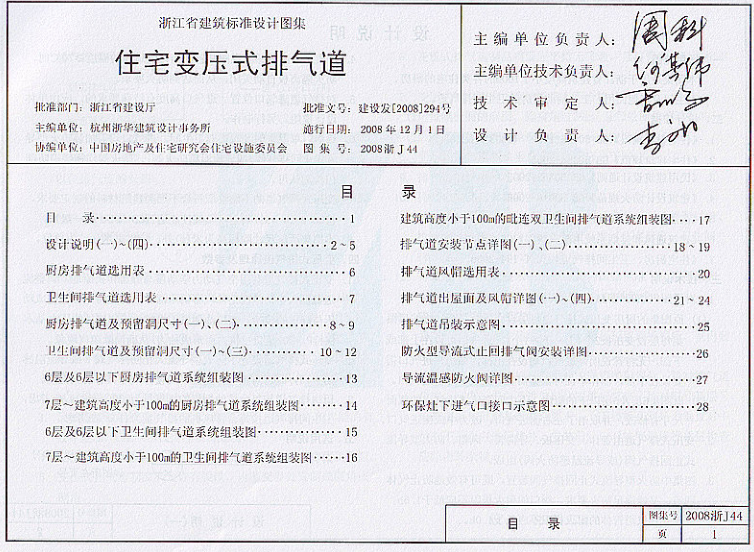 浙江省建筑标准设计图集
住宅变压式排气道
批准部门：浙江省建设厅
批准文号：建设发[2008]294号
主编单位：杭州浙华建筑设计事务所
施行日期：2008年12月1日
协编单位：中国房地产及住宅研究会住宅设施委员会
图集号：2008浙J44
主编单位负责人：
主编单位技术负责人：
技术审定人：
设计负责人：
目 录
目 录······1
设计说明(一)~(四)······2~5
厨房排气道选用表······6
卫生间排气道选用表······7
厨房排气道及预留洞尺寸(一)、(二)······8~9
卫生间排气道及预留洞尺寸(一)~(三)······10~12
6层及6层以下厨房排气道系统组装图······13
7层～建筑高度小于100m的厨房排气道系统组装图······14
6层及6层以下卫生间排气道系统组装图······15
7层～建筑高度小于100m的卫生间排气道系统组装图······16
建筑高度小于100m的毗连双卫生间排气道系统组装图······17
排气道安装节点详图(一)、(二)······18~19
排气道风帽选用表······20
排气道出屋面及风帽详图(一)~(四)······21~24
排气道吊装示意图······25
防火型导流式止回排气阀安装详图······26
导流温感防火阀详图······27
环保灶下进气口接口示意图······28
目 录
图集号 2008浙J44
页 1